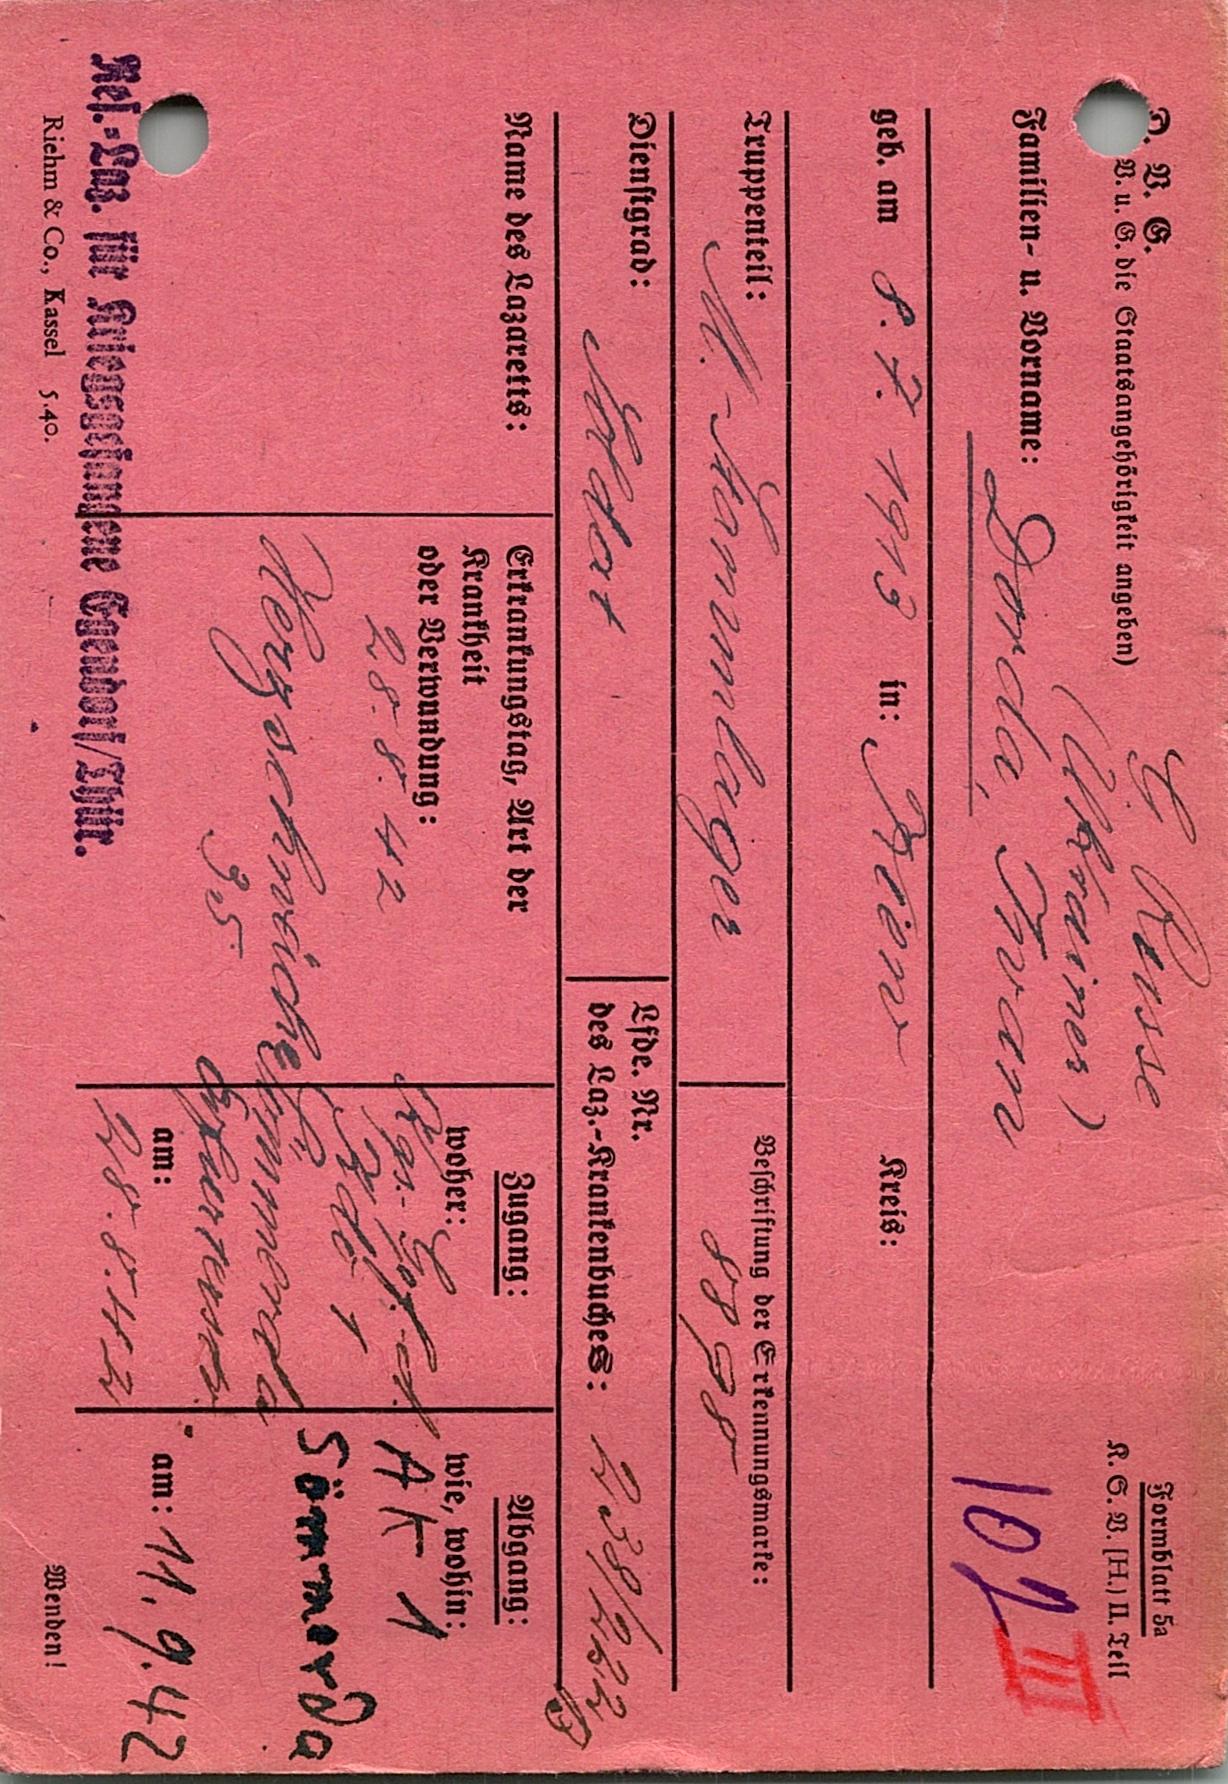 D. V. G.
V. u. G. die Staatsangehörigkeit angeben)
Russe
(Ukrainer)
Formblatt 5a
K. S. V. [H.] II. Teil
Familien- u. Vorname: Dorda, Iwan
10
III
geb. am 8. 7. 1913 in: Kiew Kreis:
Truppenteil: M.-Stammlager
Beschriftung der Erkennungsmarke:
8898
Dienstgrad: Soldat
Lfde. Nr.
des Laz.-Krankenbuches: 238/2522
Name des Lazaretts:
Erkrankungstag, Art der
Krankheit
oder Verwundung:
28. 8. 42
Herzschwäche
35
Zugang:
woher:
Kgs.-Gef.
Kdo 1
Sömmerda
am:
28. 8. 42
Abgang:
wie, wohin:
AK 1
Sömmerda
am: 11. 9. 42
Res.-Laz. für Kriegsgefangene Egendorf/Thür.
Riehm & Co., Kassel 5.40.
Wenden!